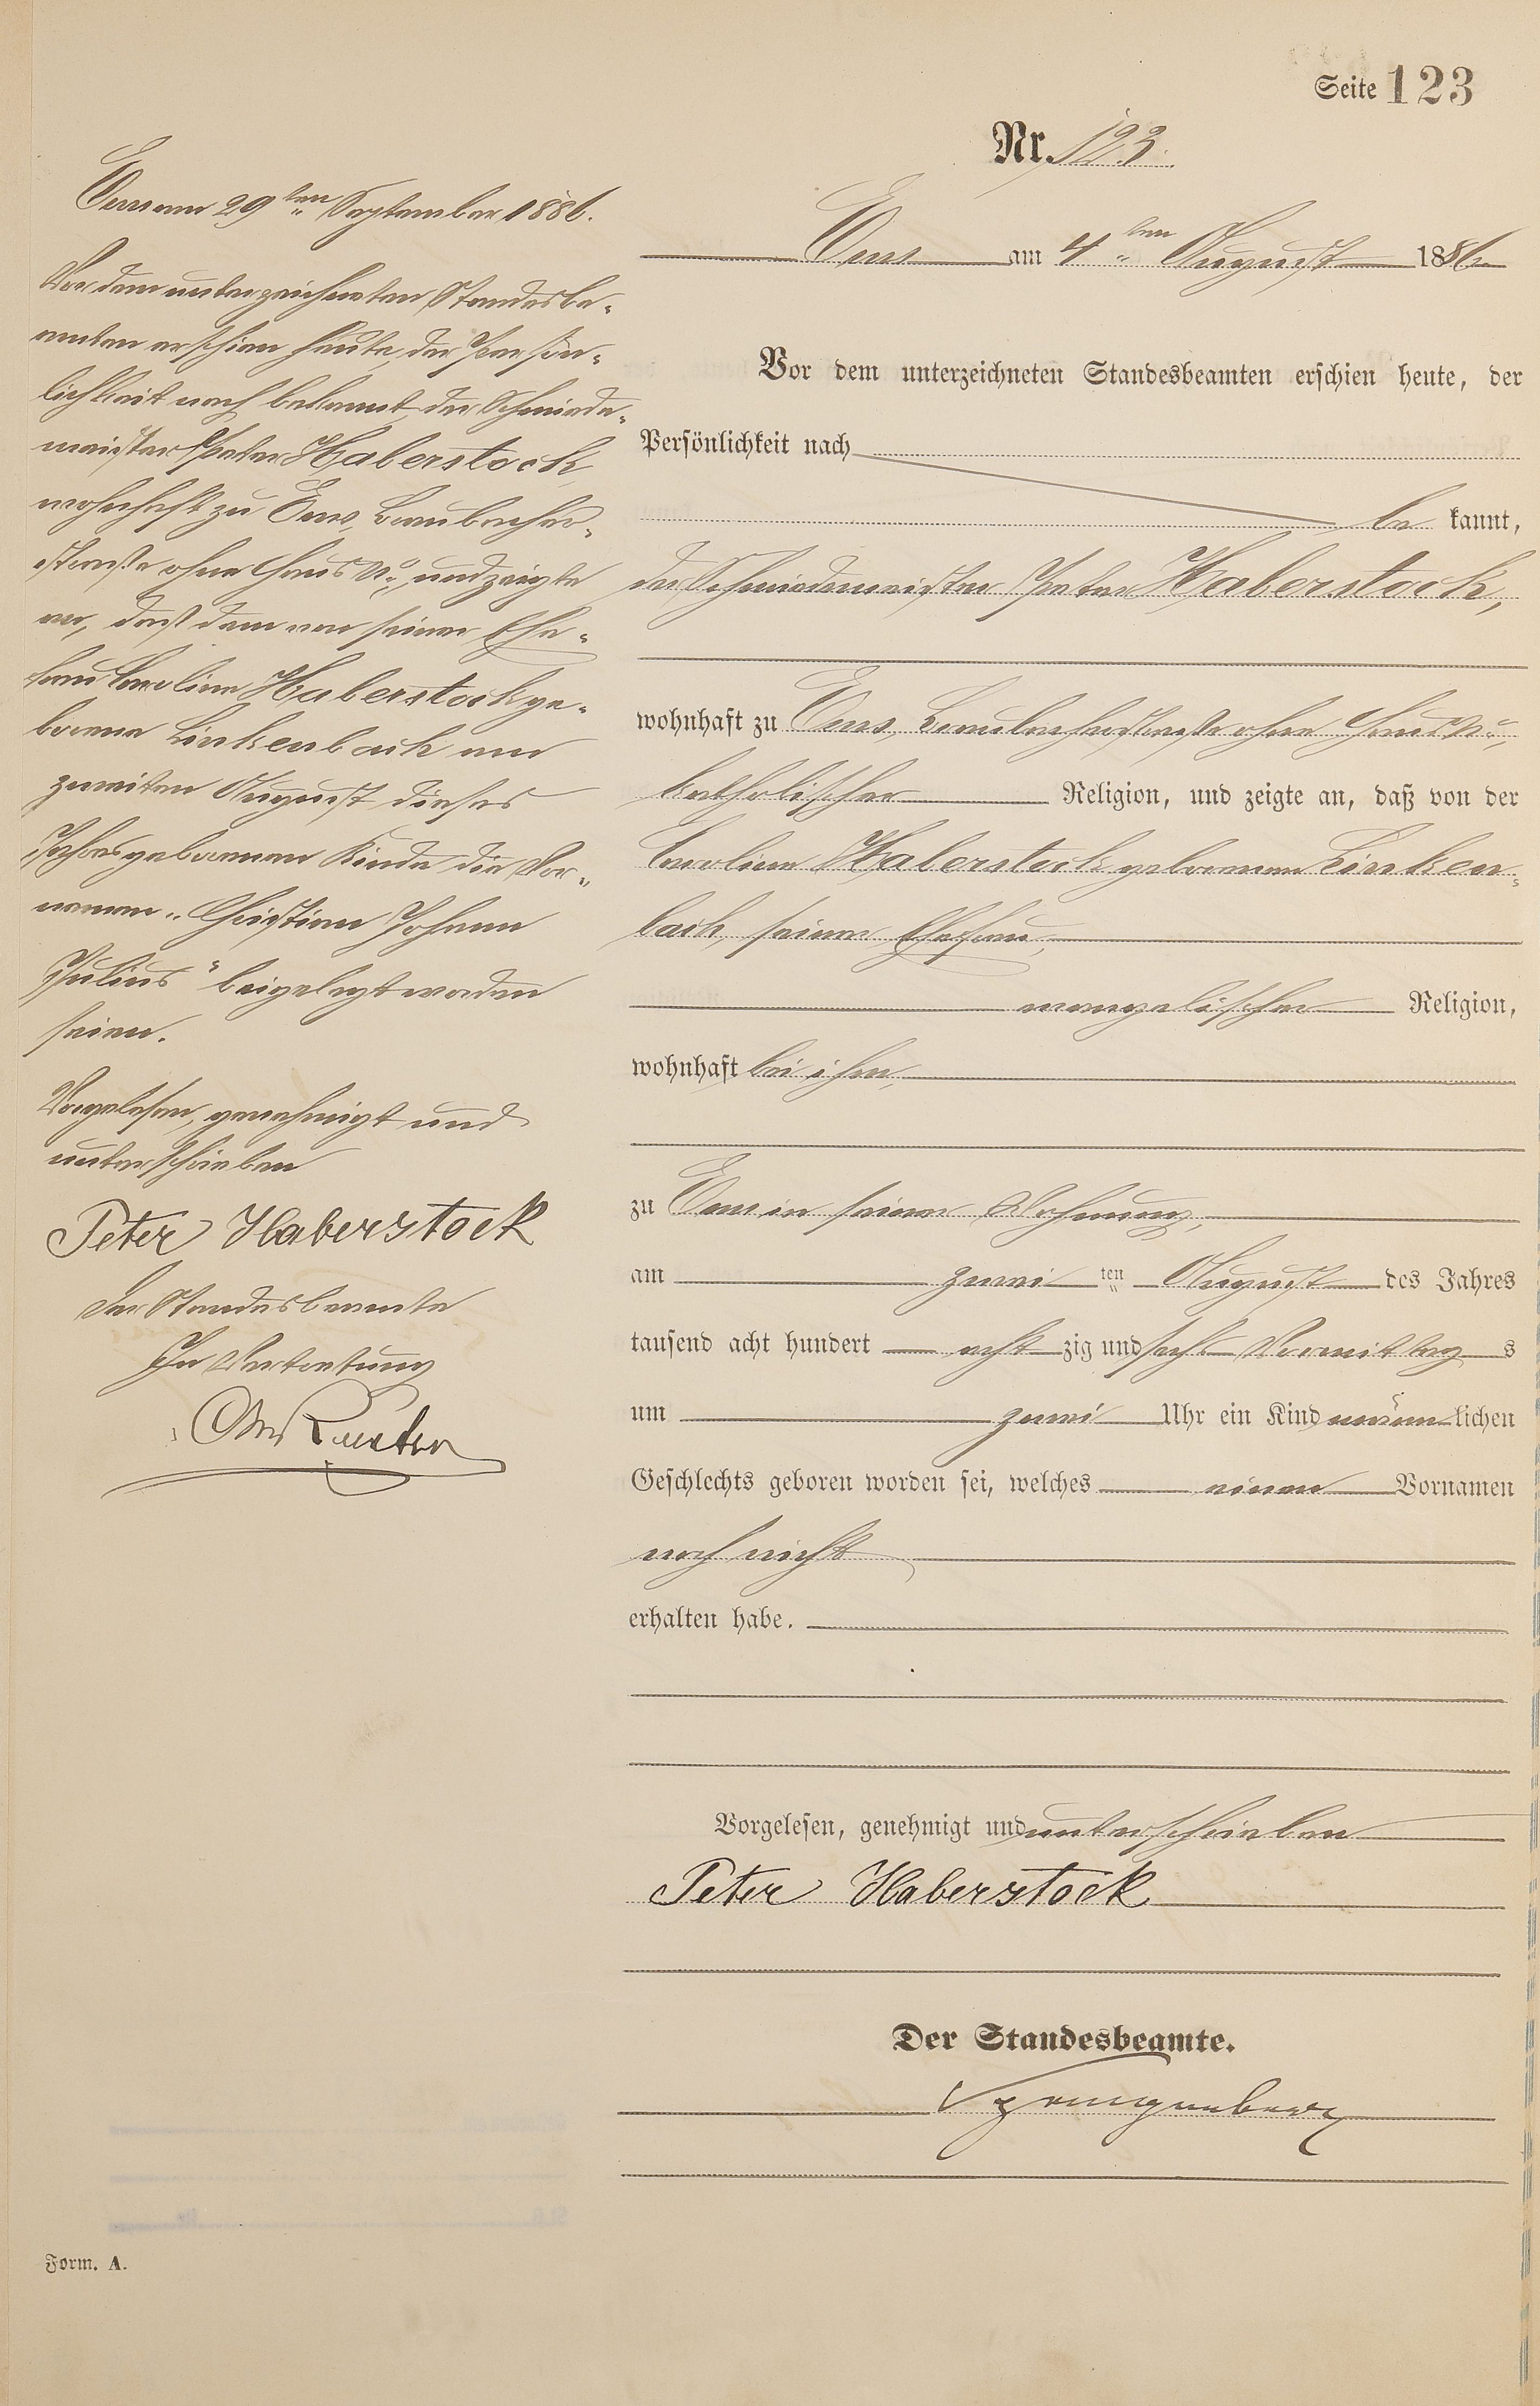 Seite 123
Nr. 123.
Ems am 4ten August 1886
Vor dem unterzeichneten Standesbeamten erschien heute, der
Persönlichkeit nach
be kannt,
der Schmiedemeister Peter Haberstock,
wohnhaft zu Ems, Braubacherstraße ohne Haus No,
katholischer Religion, und zeigte an, daß von der
Caroline Haberstock geborenen Linken-
bach, seiner Ehefrau,
evangelischer Religion,
wohnhaft bei ihm,
zu Ems in seiner Wohnung,
am zwei ten August des Jahres
tausend acht hundert acht zig und sechs Vormittag s
um zwei Uhr ein Kind männ lichen
Geschlechts geboren worden sei, welches einen Vornamen
noch nicht
erhalten habe.
Vorgelesen, genehmigt und unterschrieben
Peter Haberstock
Der Standesbeamte.
Ems am 29ten September 1886.
Vor dem unterzeichneten Standesbe-
amten erschien heute, der Persön-
lichkeit nach bekannt, der Schmiede-
meister Peter Haberstock,
wohnhaft zu Ems, Braubacher-
straße ohne Haus No, und zeigte
an, daß dem von seiner Ehe-
frau Caroline Haberstock ge-
borene Linkenbach am
zweiten August dieses
Jahres geborenen Kinde die Vor-
namen „Christian Johann
Julius" beigelegt worden
seien.
Vorgelesen, genehmigt und
unterschrieben
Peter Haberstock
Der Standesbeamte
In Vertretung
Form. A.